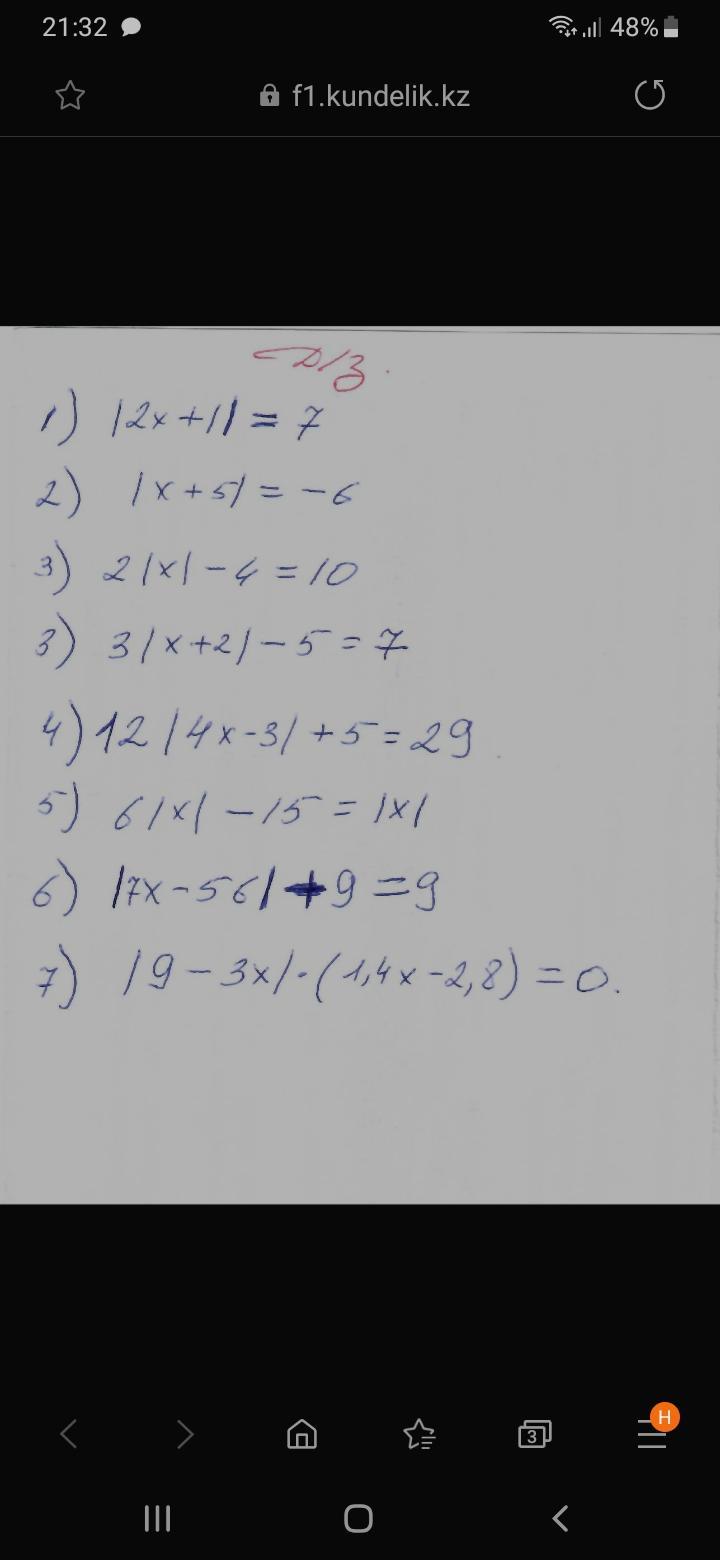 21:32
48%
f1.kundelik.kz
Д/З.
1) |2x+1| = 7
2) |x+5| = -6
3) 2|x| - 4 = 10
3) 3|x+2| - 5 = 7
4) 12|4x-3| + 5 = 29
5) 6|x| - 15 = |x|
6) |7x-56| + 9 = 9
7) |9-3x|·(1,4x-2,8) = 0.
3
H